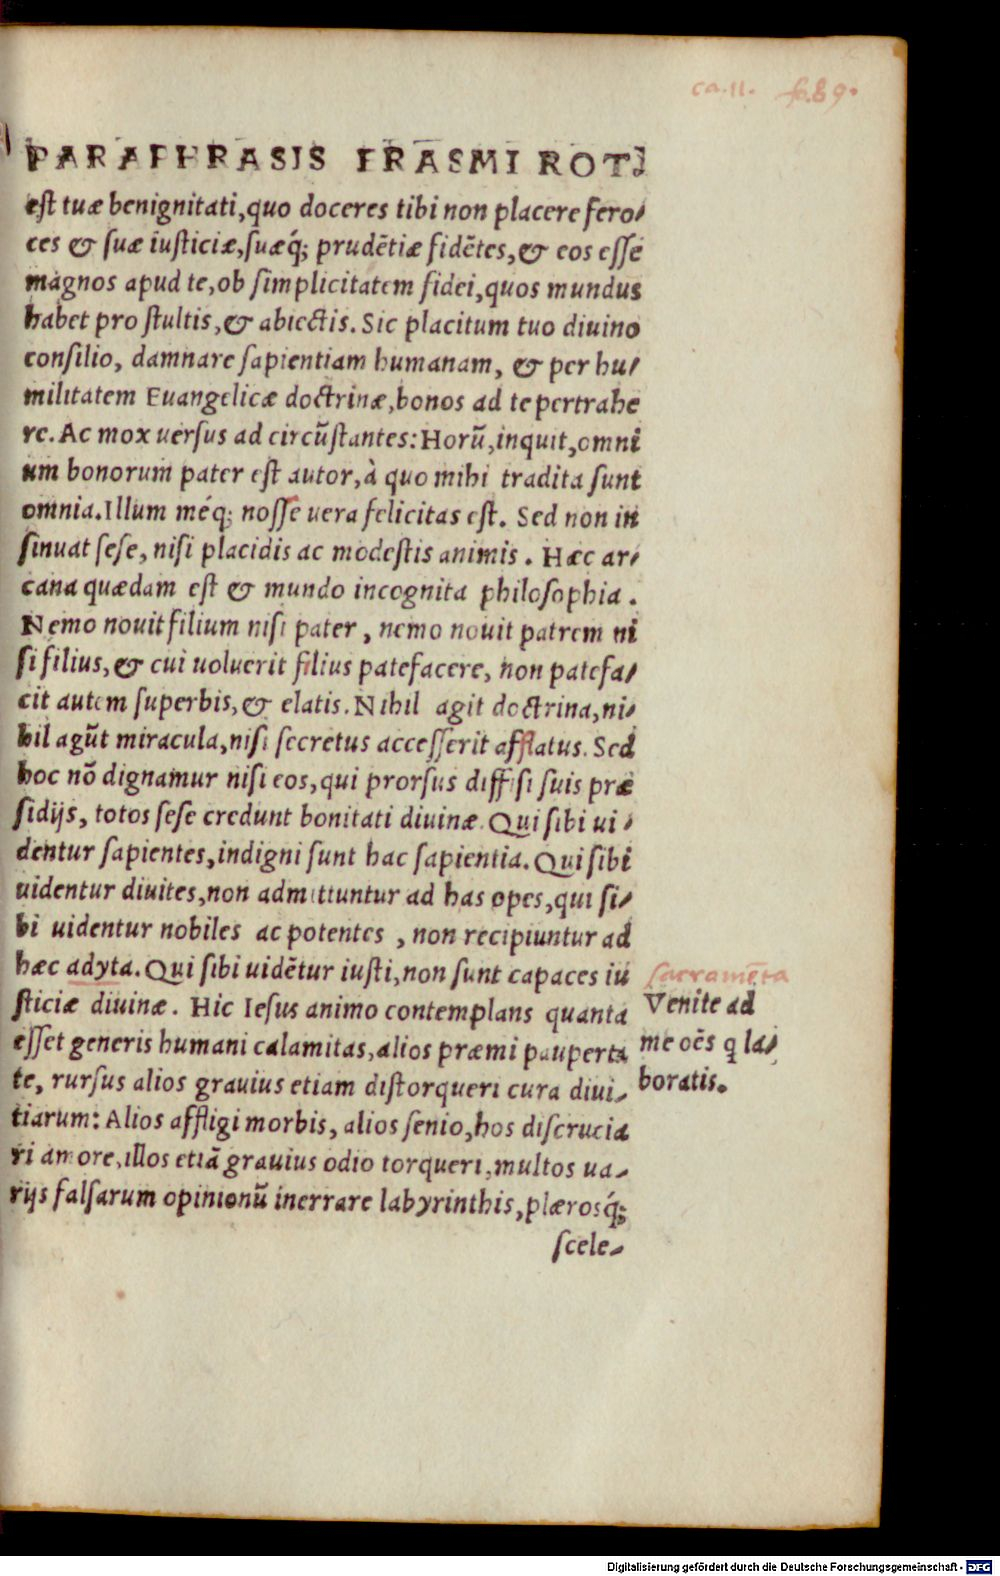 ca.11. fo.89.
PARAPHRASIS ERASMI ROT.
est tuæ benignitati,quo doceres tibi non placere fero/
ces & suæ iusticiæ,suæq́; prudētiæ fidētes,& eos esse
magnos apud te,ob simplicitatem fidei,quos mundus
habet pro stultis,& abiectis. Sic placitum tuo diuino
consilio, damnare sapientiam humanam, & per hu/
militatem Euangelicæ doctrinæ,bonos ad te pertrahe
re. Ac mox uersus ad circūstantes: Horū,inquit,omni
um bonorum pater est autor,à quo mihi tradita sunt
omnia. Illum méq; nosse uera felicitas est. Sed non in
sinuat sese, nisi placidis ac modestis animis. Hæc ar/
cana quædam est & mundo incognita philosophia.
Nemo nouit filium nisi pater, nemo nouit patrem ni
si filius,& cui uoluerit filius patefacere, non patefa/
cit autem superbis,& elatis. Nihil agit doctrina,ni/
hil agūt miracula,nisi secretus accesserit afflatus. Sed
hoc nō dignamur nisi eos,qui prorsus diffisi suis præ
sidijs, totos sese credunt bonitati diuinæ. Qui sibi ui/
dentur sapientes,indigni sunt hac sapientia. Qui sibi
uidentur diuites,non admittuntur ad has opes,qui si/
bi uidentur nobiles ac potentes, non recipiuntur ad
hæc adyta. Qui sibi uidētur iusti,non sunt capaces iu
sticiæ diuinæ. Hic Iesus animo contemplans quanta
esset generis humani calamitas,alios præmi pauperta
te, rursus alios grauius etiam distorqueri cura diui/
tiarum: Alios affligi morbis, alios senio,hos discrucia
ri amore,illos etiā grauius odio torqueri,multos ua/
rijs falsarum opinionū inerrare labyrinthis,plærosq́;
scele/
sacramēta
Venite ad
me oēs q la/
boratis.
Digitalisierung gefördert durch die Deutsche Forschungsgemeinschaft - DFG